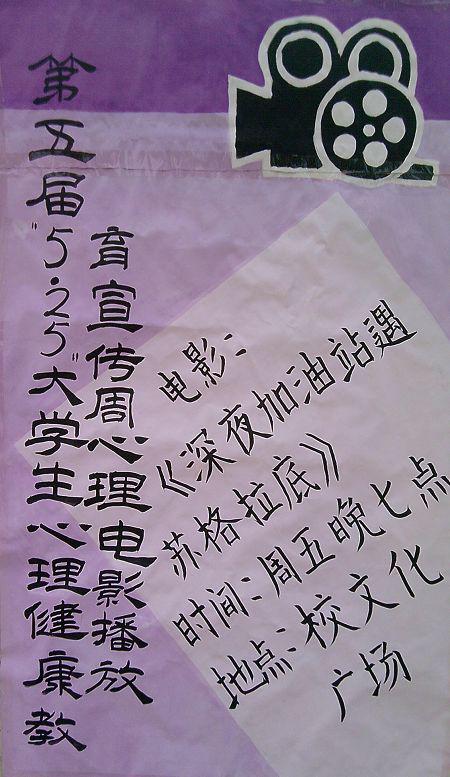 第五届"5.25"大学生心理健康教
育宣传周心理电影播放
电影:
《深夜加油站遇
苏格拉底》
时间:周五晚七点
地点:校文化
广场